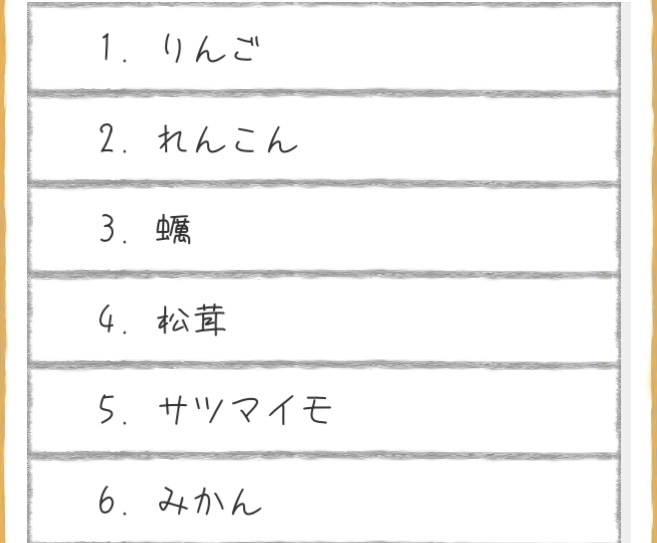 1. りんご
2. れんこん
3. 蠣
4. 松茸
5. サツマイモ
6. みかん